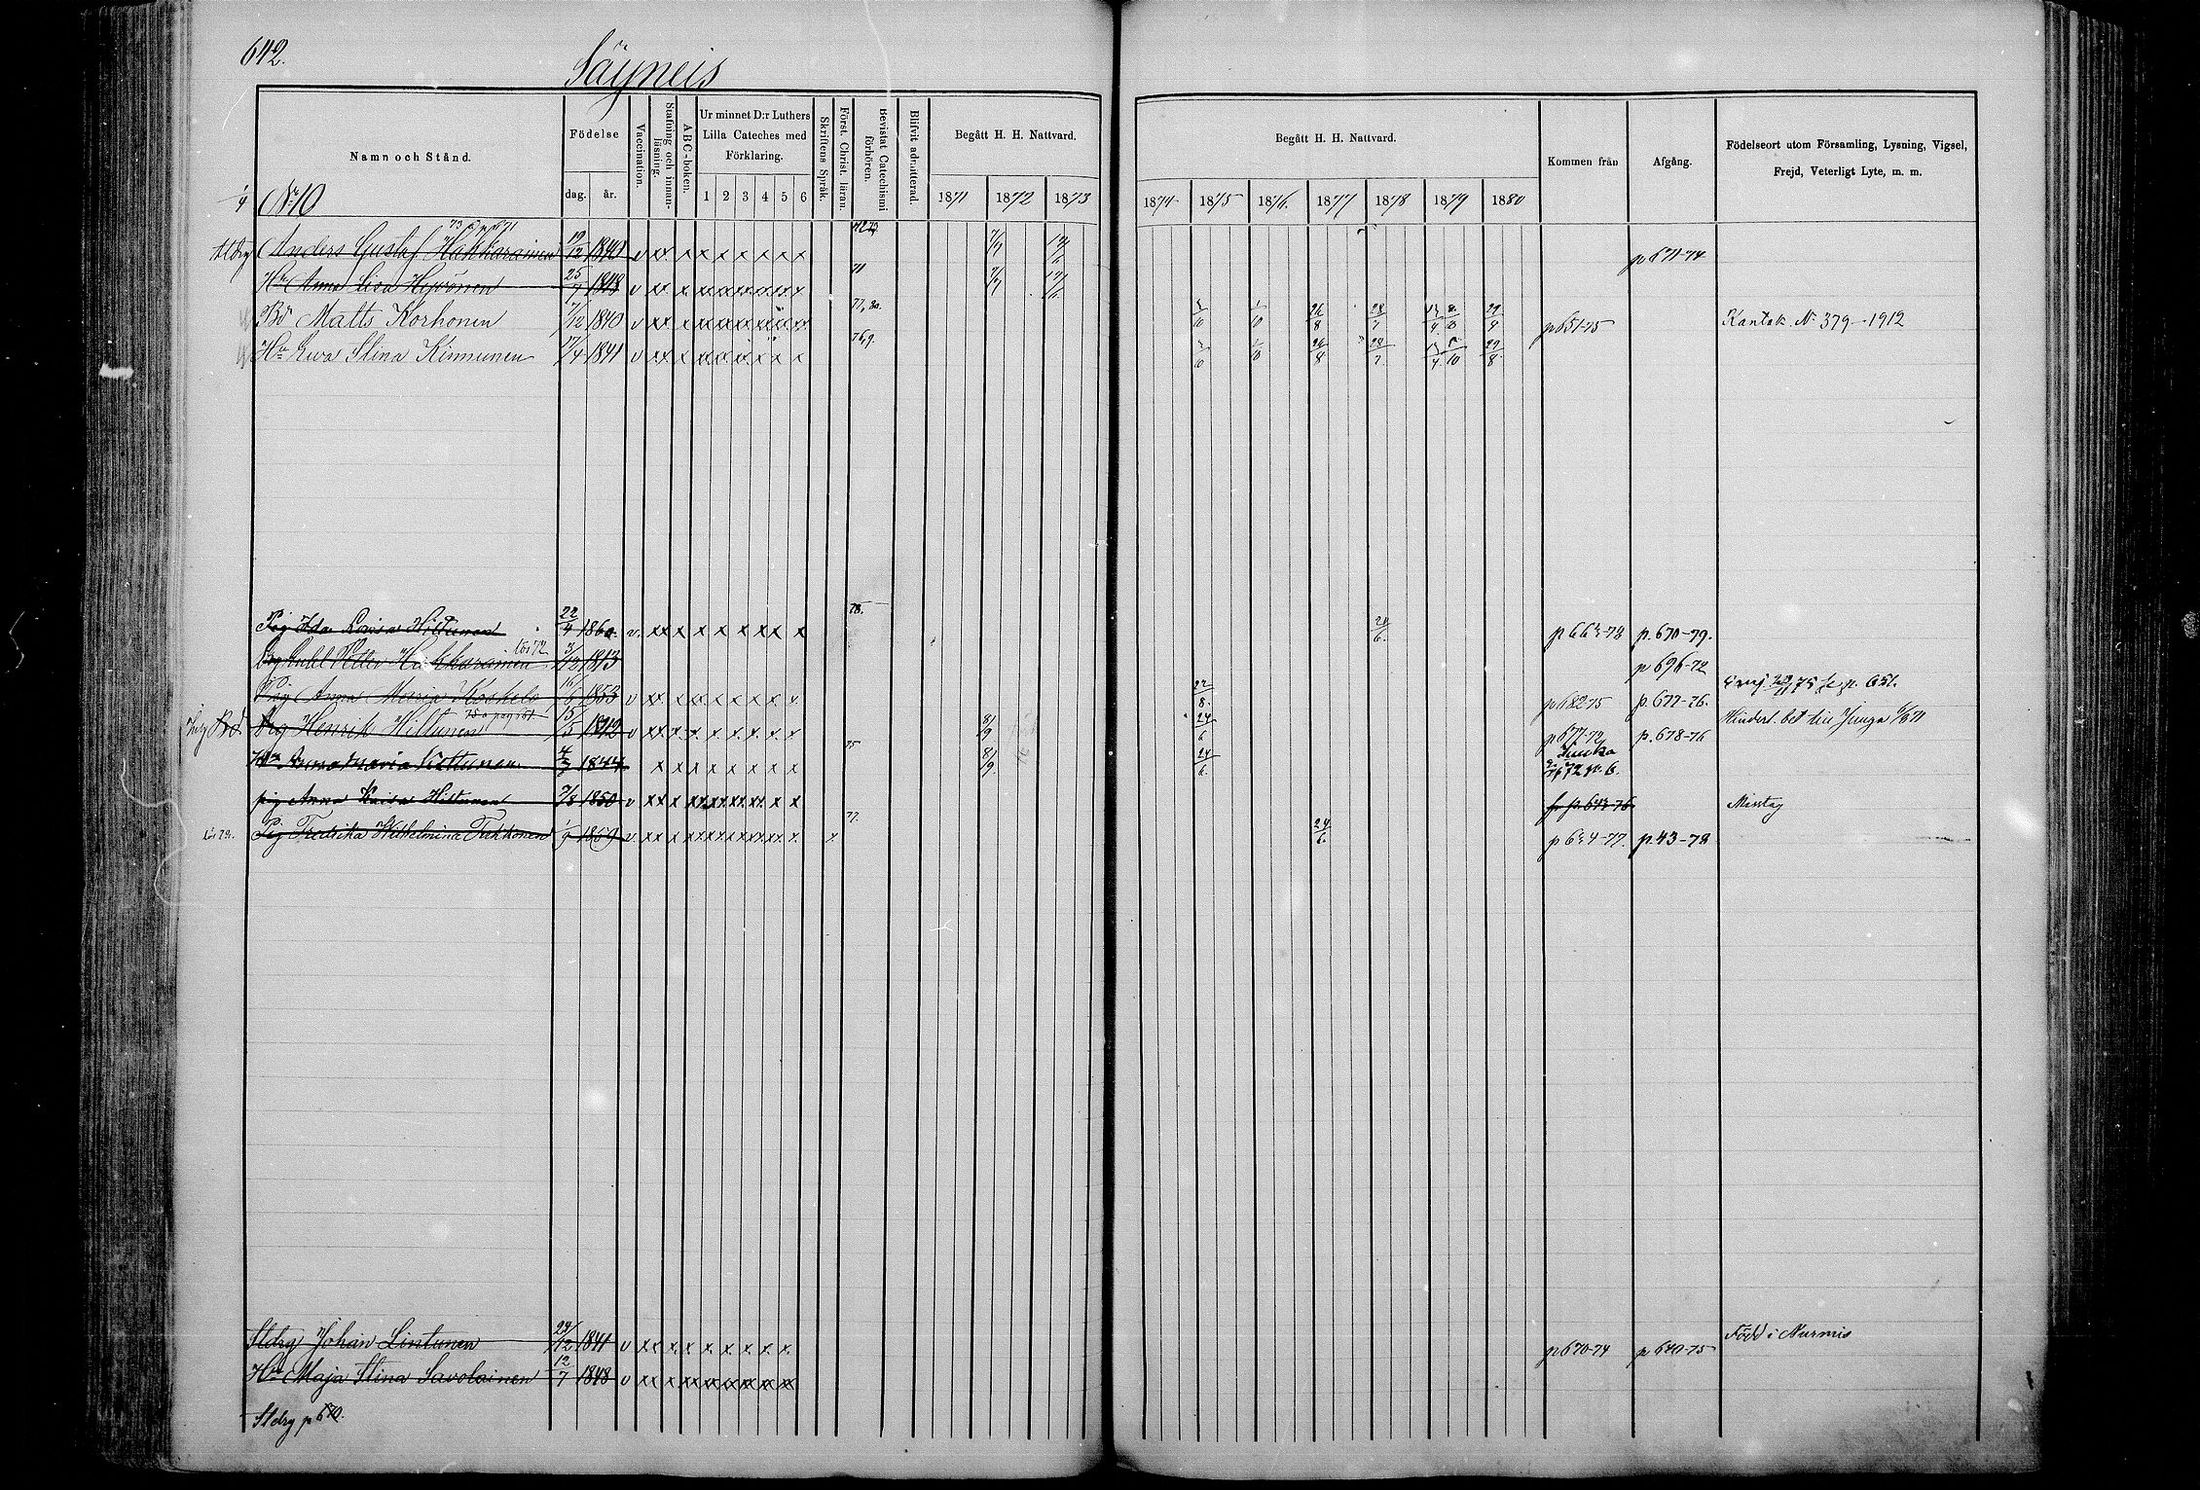 642.
Säyneis
Namn och Stånd.
Födelse
dag. år.
Vaccination.
Stafning och innan-läsning.
ABC-boken.
Ur minnet D:r Luthers Lilla Cateches med Förklaring.
1 2 3 4 5 6
Skriftens Språk.
Först. Christ. läran.
Bevistat Catechismi förhören.
Blifvit admitterad.
Begått H. H. Nattvard.
1871 1872 1873
Begått H. H. Nattvard.
1874 1875 1876. 1877 1878 1879 1880
Kommen från
Afgång.
Födelseort utom Församling, Lysning, Vigsel, Frejd, Veterligt Lyte, m. m.
1/4 No 10
Stdrg Anders Gustaf Hakkarainen 19/12 1840 v xx x x x x x x x 7/7 p 671-74
Hu Anna Lisa Hyvönen 25/7 1848 v xx x 71 7/7
Bd Matts Korhonen 7/12 1840 v xx x 77, 80. 3/10 1/10 26/8 28/7 p 651-75 Kantak. No 379 - 1912
Hu Eva Stina Kinnunen 17/4 1841 v xx x 76,9. 3/10 1/10 26/8 28/7 29/8
Pig Ida Lovisa Hiltunen 22/4 1860 v. xx x x x x xx x 78. 20/6. p 662-78 p. 670-79.
Petter Hakkarainen 3/12 1813 p 696-72
Pig Anna Maria Koskelo 16/6 1853 v xx x x x x x x x 22/8. p 682-75 p. 677-76.
Drg Henrik Hiltunen 15/5 1842 v xx x x x x x x x 8/9 24/6 p 677-72 p. 678-76
Hu Anna Maria Hiltunen 4/3 1844 x x x x x x x x 75 8/9. 24/6. Juuka
pig Anna Kaisa Hiltunen 7/8 1850 v xx x x Misstag
Pig Fredrika Wilhelmina Tirkkonen 1/9 1859 v. xx x 77. 24/6. p 634-77. p. 43-78
Stdrg Johan Lintunen 24/12 1841 v xx x x x x x x x. p 670-74 p 640-75 Född i Nurmis
Hu Maja Stina Savolainen 12/7 1848 v xx x
Stdrg p 670.